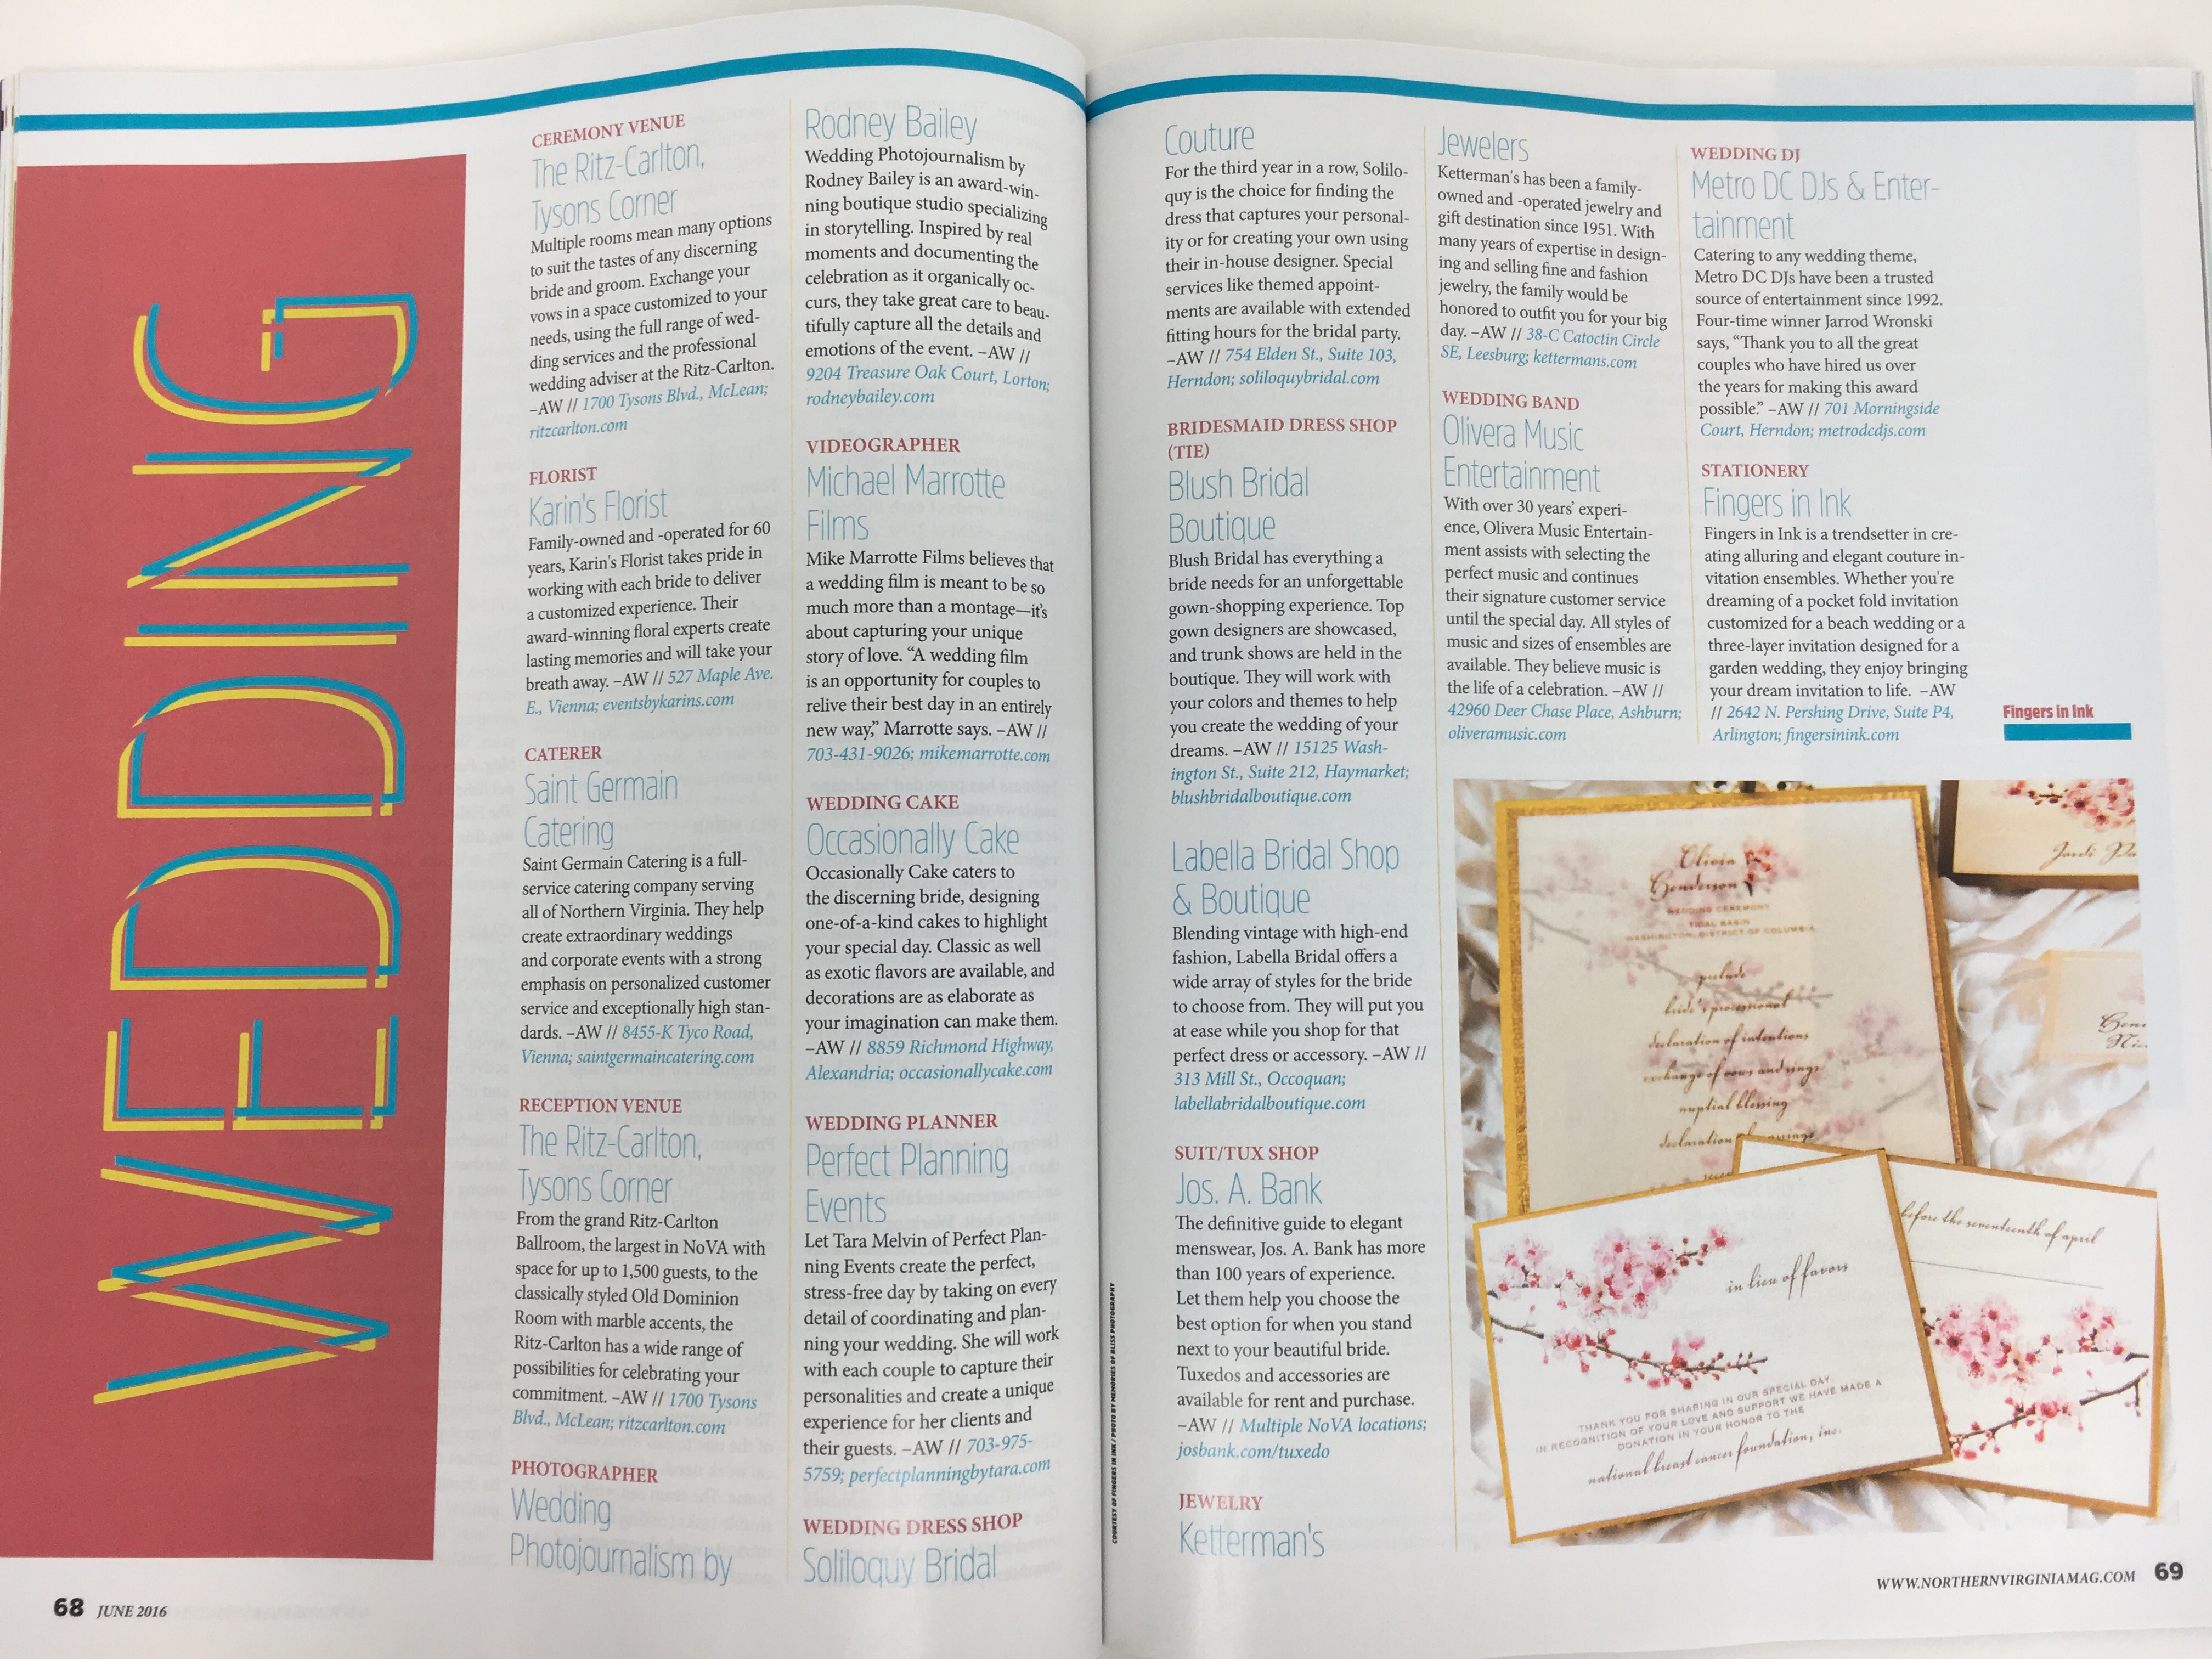 WEDDING
CEREMONY VENUE
The Ritz-Carlton,
Tysons Corner
Multiple rooms mean many options
to suit the tastes of any discerning
bride and groom. Exchange your
vows in a space customized to your
needs, using the full range of wed-
ding services and the professional
wedding adviser at the Ritz-Carlton.
–AW // 1700 Tysons Blvd., McLean;
ritzcarlton.com
FLORIST
Karin's Florist
Family-owned and -operated for 60
years, Karin's Florist takes pride in
working with each bride to deliver
a customized experience. Their
award-winning floral experts create
lasting memories and will take your
breath away. –AW // 527 Maple Ave.
E., Vienna; eventsbykarins.com
CATERER
Saint Germain
Catering
Saint Germain Catering is a full-
service catering company serving
all of Northern Virginia. They help
create extraordinary weddings
and corporate events with a strong
emphasis on personalized customer
service and exceptionally high stan-
dards. –AW // 8455-K Tyco Road,
Vienna; saintgermaincatering.com
RECEPTION VENUE
The Ritz-Carlton,
Tysons Corner
From the grand Ritz-Carlton
Ballroom, the largest in NoVA with
space for up to 1,500 guests, to the
classically styled Old Dominion
Room with marble accents, the
Ritz-Carlton has a wide range of
possibilities for celebrating your
commitment. –AW // 1700 Tysons
Blvd., McLean; ritzcarlton.com
PHOTOGRAPHER
Wedding
Photojournalism by
Rodney Bailey
Wedding Photojournalism by
Rodney Bailey is an award-win-
ning boutique studio specializing
in storytelling. Inspired by real
moments and documenting the
celebration as it organically oc-
curs, they take great care to beau-
tifully capture all the details and
emotions of the event. –AW //
9204 Treasure Oak Court, Lorton;
rodneybailey.com
VIDEOGRAPHER
Michael Marrotte
Films
Mike Marrotte Films believes that
a wedding film is meant to be so
much more than a montage—it's
about capturing your unique
story of love. “A wedding film
is an opportunity for couples to
relive their best day in an entirely
new way,” Marrotte says. –AW //
703-431-9026; mikemarrotte.com
WEDDING CAKE
Occasionally Cake
Occasionally Cake caters to
the discerning bride, designing
one-of-a-kind cakes to highlight
your special day. Classic as well
as exotic flavors are available, and
decorations are as elaborate as
your imagination can make them.
–AW // 8859 Richmond Highway,
Alexandria; occasionallycake.com
WEDDING PLANNER
Perfect Planning
Events
Let Tara Melvin of Perfect Plan-
ning Events create the perfect,
stress-free day by taking on every
detail of coordinating and plan-
ning your wedding. She will work
with each couple to capture their
personalities and create a unique
experience for her clients and
their guests. –AW // 703-975-
5759; perfectplanningbytara.com
WEDDING DRESS SHOP
Soliloquy Bridal
68 JUNE 2016
Couture
For the third year in a row, Solilo-
quy is the choice for finding the
dress that captures your personal-
ity or for creating your own using
their in-house designer. Special
services like themed appoint-
ments are available with extended
fitting hours for the bridal party.
–AW // 754 Elden St., Suite 103,
Herndon; soliloquybridal.com
BRIDESMAID DRESS SHOP
(TIE)
Blush Bridal
Boutique
Blush Bridal has everything a
bride needs for an unforgettable
gown-shopping experience. Top
gown designers are showcased,
and trunk shows are held in the
boutique. They will work with
your colors and themes to help
you create the wedding of your
dreams. –AW // 15125 Wash-
ington St., Suite 212, Haymarket;
blushbridalboutique.com
Labella Bridal Shop
& Boutique
Blending vintage with high-end
fashion, Labella Bridal offers a
wide array of styles for the bride
to choose from. They will put you
at ease while you shop for that
perfect dress or accessory. –AW //
313 Mill St., Occoquan;
labellabridalboutique.com
SUIT/TUX SHOP
Jos. A. Bank
The definitive guide to elegant
menswear, Jos. A. Bank has more
than 100 years of experience.
Let them help you choose the
best option for when you stand
next to your beautiful bride.
Tuxedos and accessories are
available for rent and purchase.
–AW // Multiple NoVA locations;
josbank.com/tuxedo
JEWELRY
Ketterman's
Jewelers
Ketterman's has been a family-
owned and -operated jewelry and
gift destination since 1951. With
many years of expertise in design-
ing and selling fine and fashion
jewelry, the family would be
honored to outfit you for your big
day. –AW // 38-C Catoctin Circle
SE, Leesburg; kettermans.com
WEDDING BAND
Olivera Music
Entertainment
With over 30 years' experi-
ence, Olivera Music Entertain-
ment assists with selecting the
perfect music and continues
their signature customer service
until the special day. All styles of
music and sizes of ensembles are
available. They believe music is
the life of a celebration. –AW //
42960 Deer Chase Place, Ashburn;
oliveramusic.com
WEDDING DJ
Metro DC DJs & Enter-
tainment
Catering to any wedding theme,
Metro DC DJs have been a trusted
source of entertainment since 1992.
Four-time winner Jarrod Wronski
says, “Thank you to all the great
couples who have hired us over
the years for making this award
possible.” –AW // 701 Morningside
Court, Herndon; metrodcdjs.com
STATIONERY
Fingers in Ink
Fingers in Ink is a trendsetter in cre-
ating alluring and elegant couture in-
vitation ensembles. Whether you're
dreaming of a pocket fold invitation
customized for a beach wedding or a
three-layer invitation designed for a
garden wedding, they enjoy bringing
your dream invitation to life. –AW
// 2642 N. Pershing Drive, Suite P4,
Arlington; fingersinink.com
Fingers in Ink
Olivia
Henderson
WEDDING CEREMONY
TIDAL BASIN
WASHINGTON, DISTRICT OF COLUMBIA
prelude
bride's processional
declaration of intentions
exchange of vows and rings
nuptial blessing
declaration
Jordi
before the seventeenth of april
in lieu of favors
THANK YOU FOR SHARING IN OUR SPECIAL DAY.
IN RECOGNITION OF YOUR LOVE AND SUPPORT WE HAVE MADE A
DONATION IN YOUR HONOR TO THE
national breast cancer foundation, inc.
COURTESY OF FINGERS IN INK / PHOTO BY MEMORIES OF BLISS PHOTOGRAPHY
WWW.NORTHERNVIRGINIAMAG.COM 69